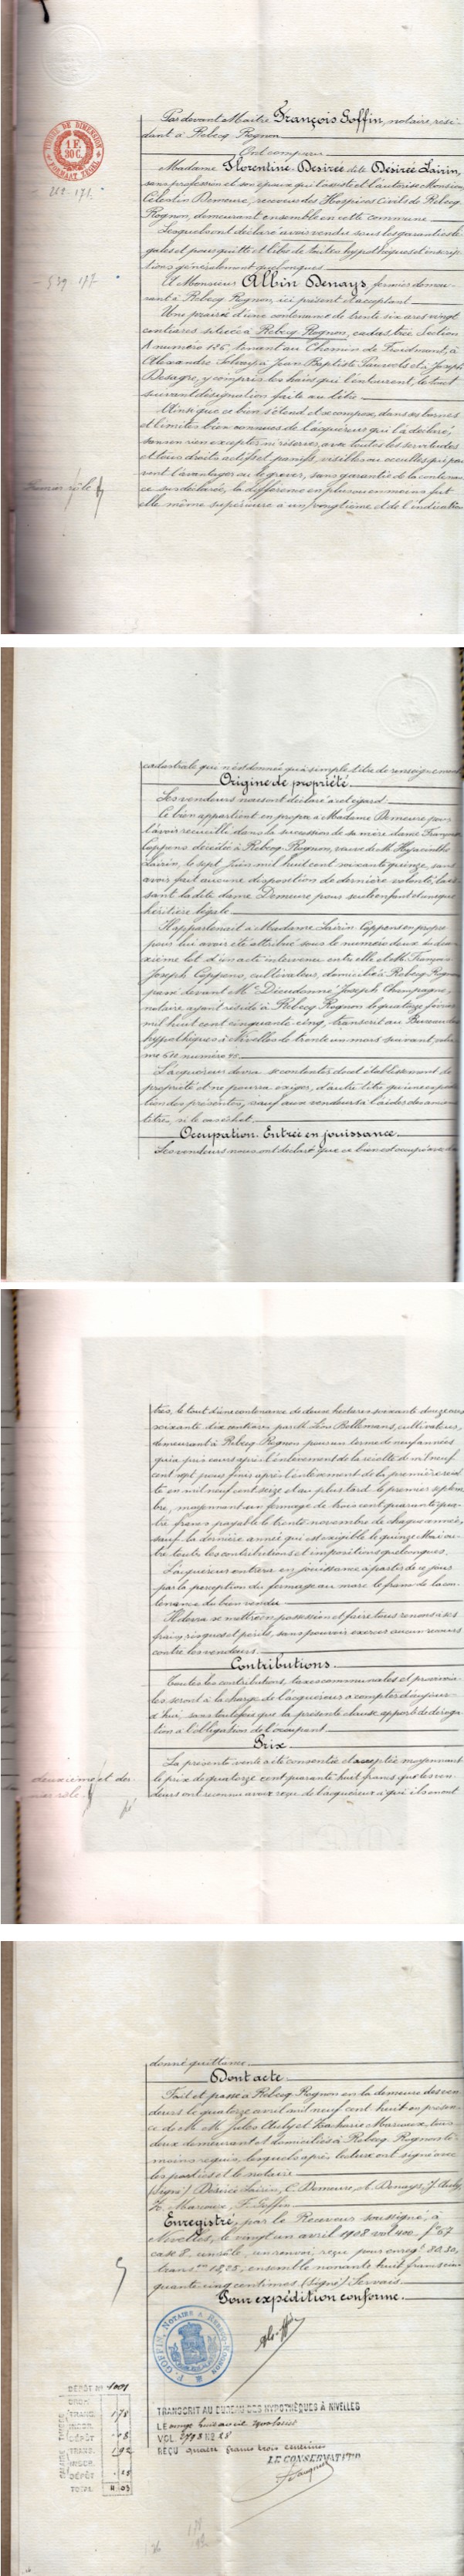 TIMBRE DE DIMENSION
1 F.
30 C.
Par devant Maître François Goffin, notaire rési-
dant à Rebecq Rognon
Ont comparu
Madame Florentine Désirée dite Désirée Lairin,
sans profession et son époux qui l'assiste et l'autorise Monsieur
Célestin Demeure, receveur des Hospices Civils de Rebecq
Rognon, demeurant ensemble en cette commune
Lesquels ont déclaré avoir vendu sous les garanties lé-
gales et pour quitte et libre de toutes hypothèques et inscrip-
tions généralement quelconques
A Monsieur Albin Denays, fermier demeu-
rant à Rebecq Rognon, ici présent et acceptant
Une prairie d'une contenance de trente six ares vingt
centiares située à Rebecq Rognon, cadastrée Section
A numéro 126, tenant au Chemin de Froidmont, à
Alexandre à Jean Baptiste et à Joseph
Desagre, y compris les haies qui l'entourent, le tout
suivant désignation faite au titre
Ainsi que ce bien s'étend et se compose, dans ses bornes
et limites bien connues de l'acquéreur qui l'a déclaré,
sans en rien excepter ni réserver, avec toutes les servitudes
et tous droits actifs et passifs, visibles ou occultes qui peu-
vent l'avantager ou le grever, sans garantie de la contenan-
ce sus déclarée, la différence en plus ou en moins fut
elle même supérieure à un vingtième et de l'indication
Premier rôle
cadastrale qui n'est donnée qu'à simple titre de renseignement
Origine de propriété
Les vendeurs nous ont déclaré à cet égard
Le bien appartient en propre à Madame Demeure pour
l'avoir recueilli dans la succession de sa mère dame Françoise
Coppens décédée à Rebecq Rognon, veuve de M. Hyacinthe
Lairin, le sept Juin mil huit cent soixante quinze, sans
avoir fait aucune disposition de dernière volonté, lais-
sant la dite dame Demeure pour seule enfant et unique
héritière légale
Il appartenait à Madame Lairin Coppens en propre
pour lui avoir été attribué sous le numéro deux du deu-
xième lot d'un acte intervenu entre elle et M. François
Joseph Coppens, cultivateur, domicilié à Rebecq Rognon
par devant M. Dieudonné Joseph Champagne,
notaire ayant résidé à Rebecq Rognon le quatorze février
mil huit cent cinquante cinq, transcrit au Bureau des
hypothèques à Nivelles le trente un mars suivant, volu-
me numéro
L'acquéreur devra se contenter de cet établissement de
propriété et ne pourra exiger, d'autre titre qu'une expédi-
tion des présentes, sauf aux vendeurs à l'aider des anciens
titres, si le cas échet
Occupation. Entrée en jouissance
Les vendeurs nous ont déclaré que ce bien est occupé avec d'au
tres, le tout d'une contenance de deux hectares soixante douze ares
soixante dix centiares par M. Léon Bollemans, cultivateur,
demeurant à Rebecq Rognon pour un terme de neuf années
qui a pris cours après l'enlèvement de la récolte de mil neuf
cent sept pour finir après l'enlèvement de la première récol
te en mil neuf cent seize et au plus tard le premier septem
bre, moyennant un fermage de trois cent quarante qua-
tre francs payable le trente novembre de chaque année,
sauf la dernière année qui est exigible le quinze Mai ou-
tre toutes les contributions et impositions quelconques
L'acquéreur entrera en jouissance à partir de ce jour
par la perception du fermage au marc le franc de la con-
tenance du bien vendu
Il devra se mettre en possession et faire tous renons à ses
frais, risques et périls, sans pouvoir exercer aucun recours
contre les vendeurs
Contributions
Toutes les contributions, taxes communales et provincia-
les seront à la charge de l'acquéreur à compter d'aujour-
d'hui, sans toutefois que la présente clause apporte de déroga
tion à l'obligation de l'occupant
Prix
La présente vente a été consentie et acceptée moyennant
le prix de quatorze cent quarante huit francs que les ven-
deurs ont reconnu avoir reçu de l'acquéreur à qui ils en ont
deuxième et der-
nier rôle
donné quittance
Dont acte
Fait et passé à Rebecq Rognon en la demeure des ven
deurs le quatorze avril mil neuf cent huit en présen-
ce de M. M. Jules Auly et Zacharie Marioux, tous
deux demeurant et domiciliés à Rebecq Rognon té-
moins requis, lesquels après lecture ont signé avec
les parties et le notaire
(signé) Désirée Lairin, C. Demeure, A. Denays, J. Auly,
Z. Marioux, F. Goffin
Enregistré, par le Receveur soussigné, à
Nivelles, le vingt un avril 1908 vol 400 f° 67
case 8, un rôle, un renvoi, reçu pour enregt
ensemble nonante huit francs cin-
quante cinq centimes (Signé) Servais
Pour expédition conforme.
F. GOFFIN, NOTAIRE A REBECQ-ROGNON
DÉPÔT N° 1001
TRANS. 1,78
INSCR.
DÉPÔT ,08
TRANS. 1,92
INSCR.
DÉPÔT ,25
TOTAL 4,03
TRANSCRIT AU BUREAU DES HYPOTHÈQUES À NIVELLES
LE
VOL. 2773 N° 28
REÇU quatre francs trois centimes
LE CONSERVATEUR